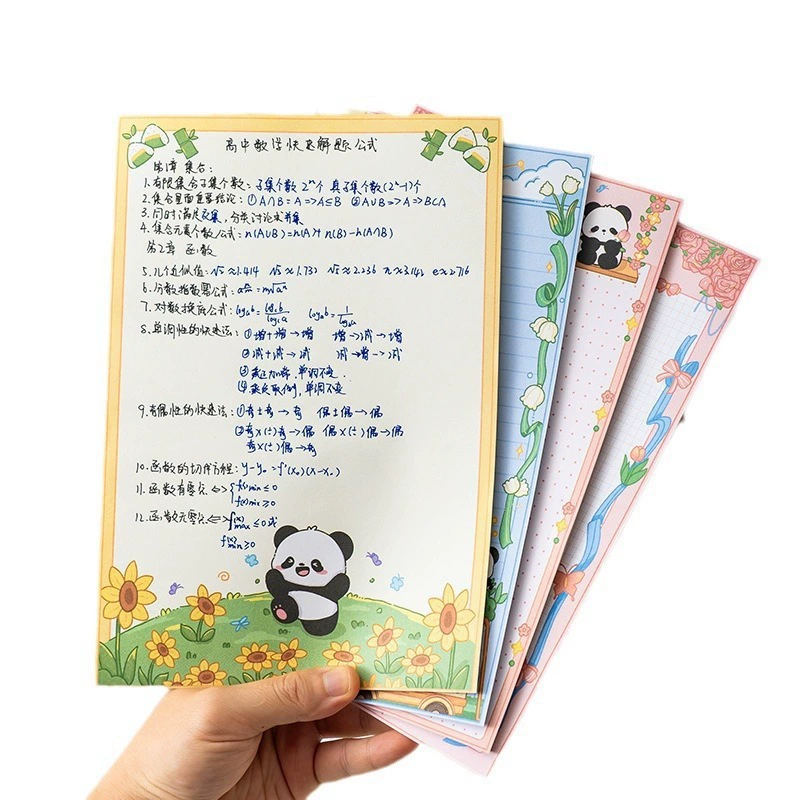 高中数学快速解题公式
第1章 集合:
1.有限集合子集个数:子集个数2ⁿ个 真子集个数(2ⁿ-1)个
2.集合里面重要结论:①A∩B=A=>A⊆B ②A∪B=>A=>B⊂A
3.同时满足交集,分类讨论求并集
4.集合元素个数公式:n(A∪B)=n(A)+n(B)-n(A∩B)
第2章 函数
5.几个近似值:√2≈1.414 √3≈1.732 √5≈2.236 π≈3.142 e≈2.716
6.分数指数幂公式:
7.对数换底公式:
8.单调性的快速法:①增+增→增 增→减→增
②减+减→减 减→增->减
单调不变
单调不变
9.奇偶性的快速法:①奇±奇→奇 偶±偶→偶
②奇×(÷)奇→偶 偶×(÷)偶→偶
奇×(÷)偶→奇
10.函数的切线方程:y-y₀=f'(x₀)(x-x₀)
11.函数有零点<=>{f(x)min≤0
f(x)max≥0
12.函数无零点<=>f(x)max≤0或
f(x)min≥0